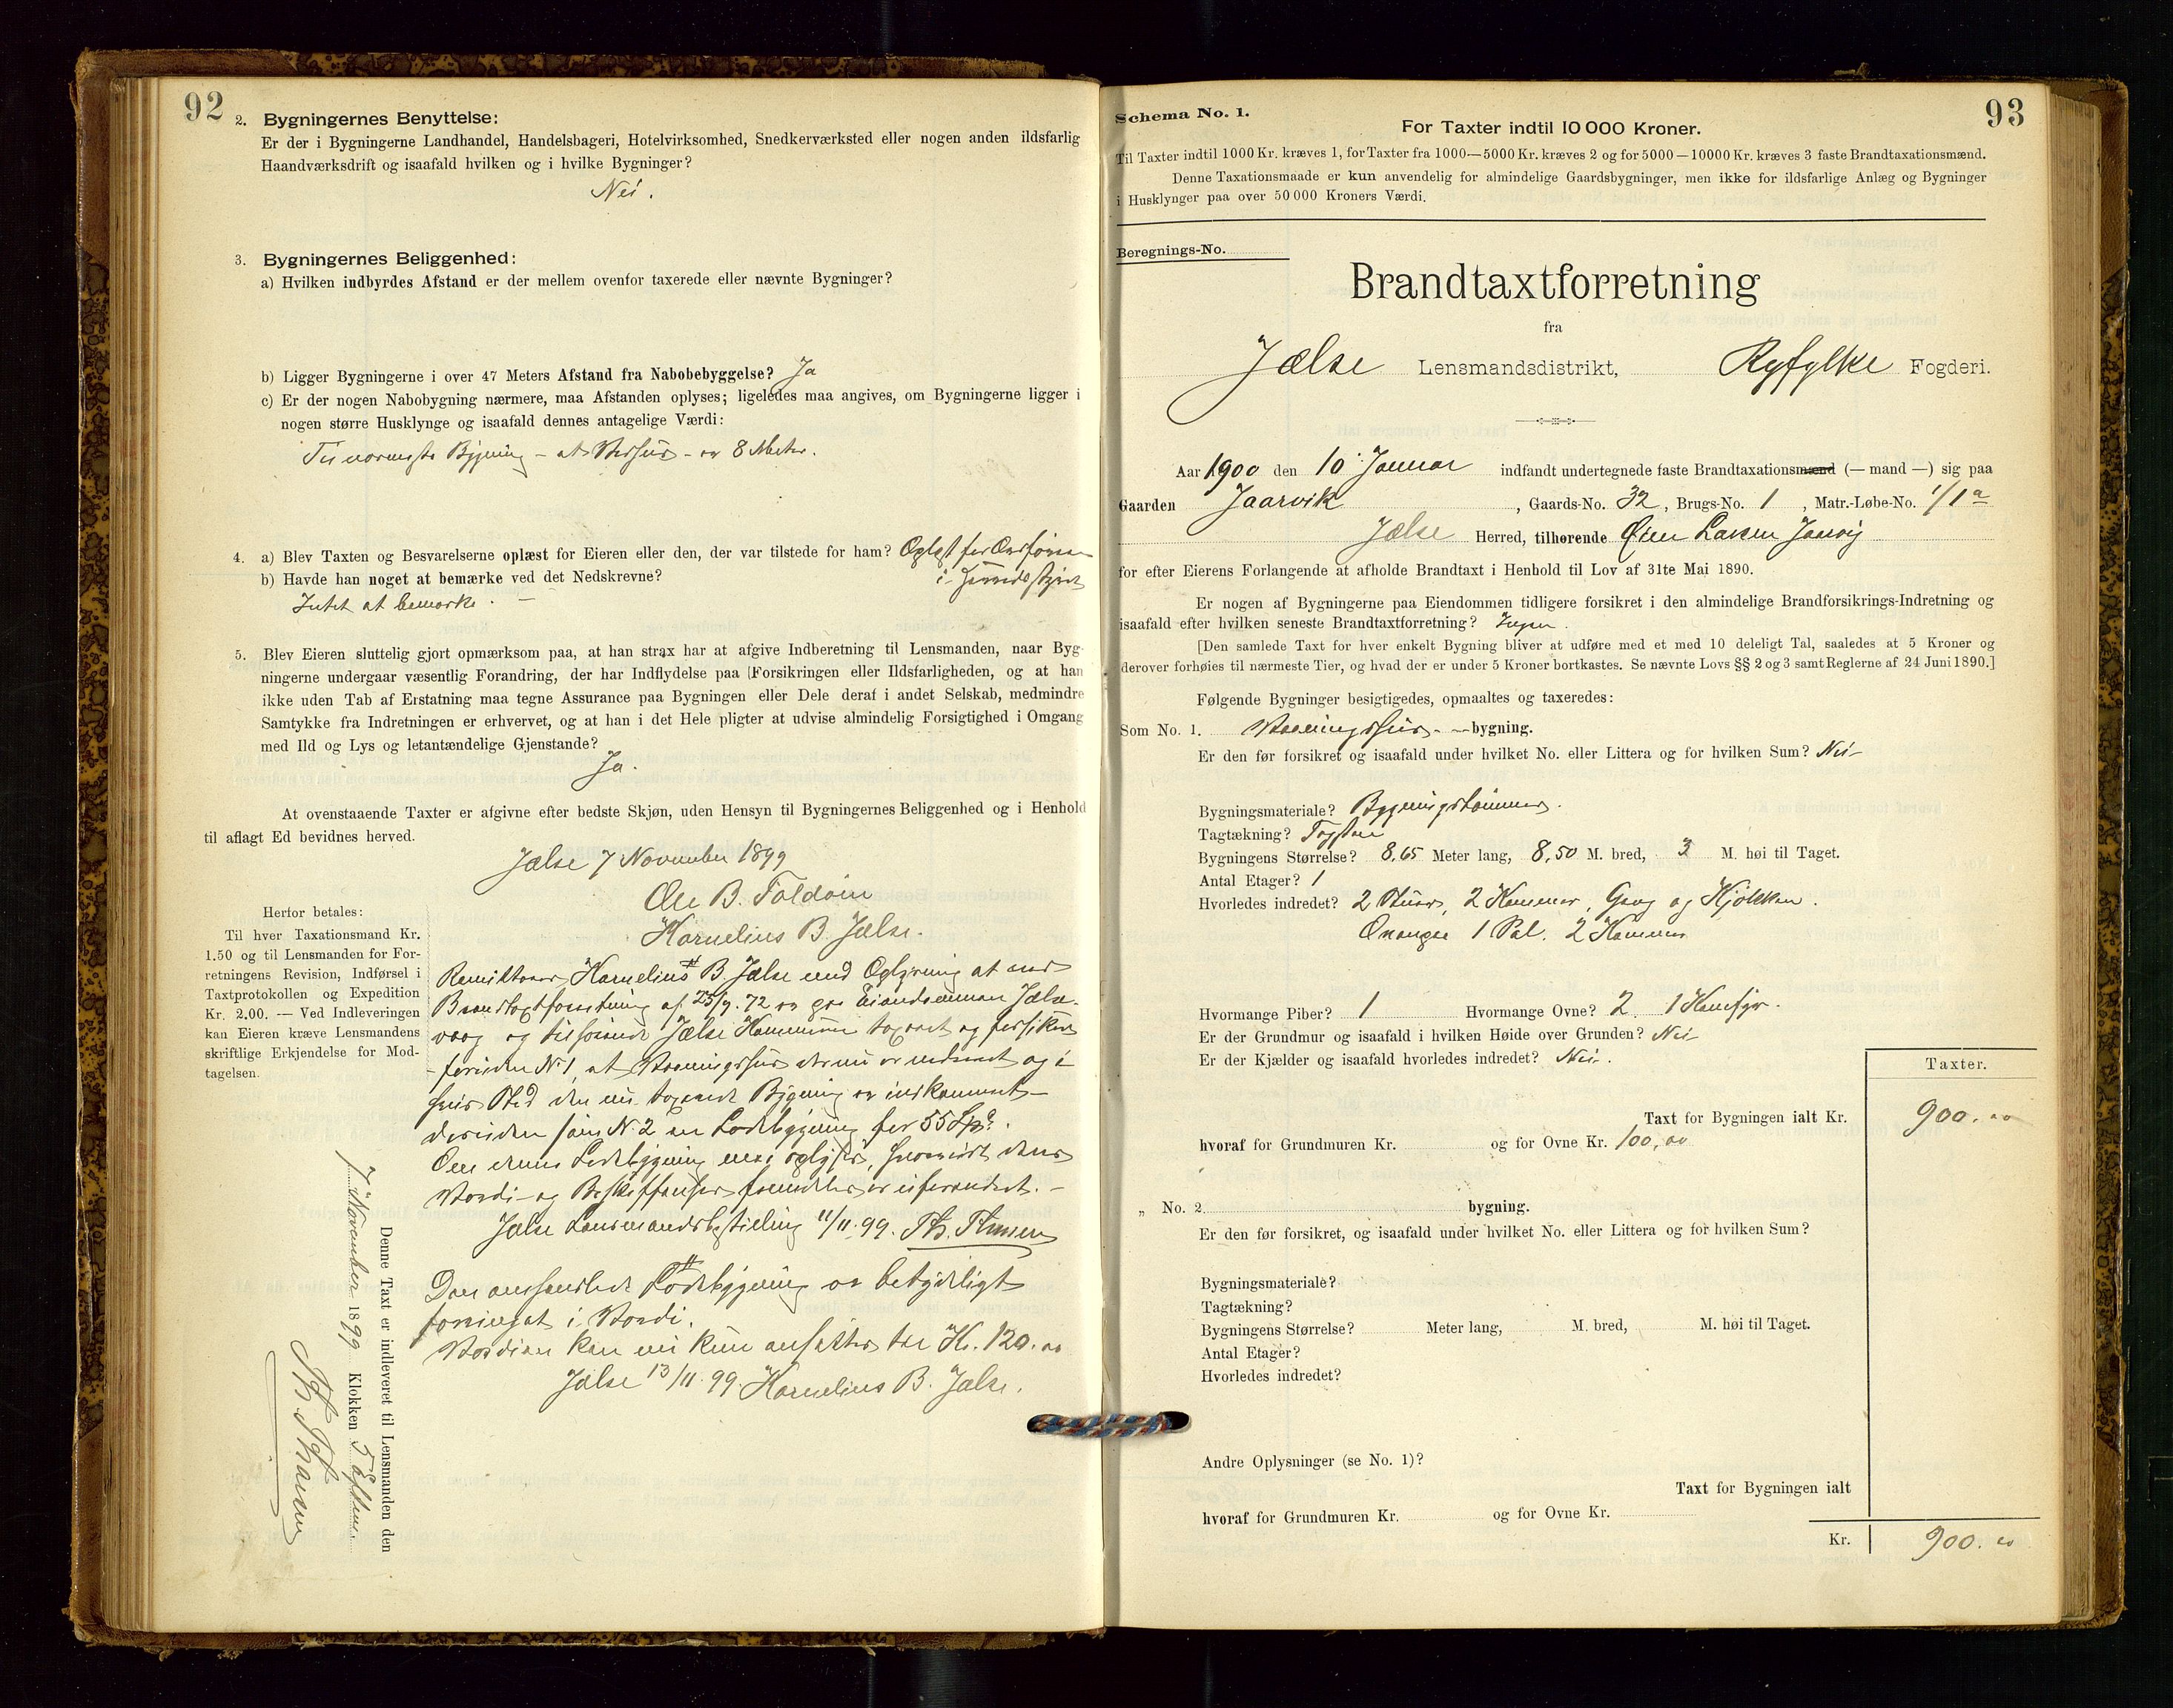 92
2. Bygningernes Benyttelse:
Er der i Bygningerne Landhandel, Handelsbageri, Hotelvirksomhed, Snedkerværksted eller nogen anden ildsfarlig
Haandværksdrift og isaafald hvilken og i hvilke Bygninger?
Nei.
3. Bygningernes Beliggenhed:
a) Hvilken indbyrdes Afstand er der mellem ovenfor taxerede eller nævnte Bygninger?
b) Ligger Bygningerne i over 47 Meters Afstand fra Nabobebyggelse? Ja
c) Er der nogen Nabobygning nærmere, maa Afstanden oplyses; ligeledes maa angives, om Bygningerne ligger i
nogen større Husklynge og isaafald dennes antagelige Værdi:
Til nærmeste Bygning - et - er 8 Meter.
4. a) Blev Taxten og Besvarelserne oplæst for Eieren eller den, der var tilstede for ham? Oplæst for Ordføreren
b) Havde han noget at bemærke ved det Nedskrevne?
Intet at bemærke. -
5. Blev Eieren sluttelig gjort opmærksom paa, at han strax har at afgive Indberetning til Lensmanden, naar Byg-
ningerne undergaar væsentlig Forandring, der har Indflydelse paa (Forsikringen eller Ildsfarligheden, og at han
ikke uden Tab af Erstatning maa tegne Assurance paa Bygningen eller Dele deraf i andet Selskab, medmindre
Samtykke fra Indretningen er erhvervet, og at han i det Hele pligter at udvise almindelig Forsigtighed i Omgang
med Ild og Lys og letantændelige Gjenstande?
Ja.
At ovenstaaende Taxter er afgivne efter bedste Skjøn, uden Hensyn til Bygningernes Beliggenhed og i Henhold
til aflagt Ed bevidnes herved.
Jælse 7 November 1899
Ole B. Foldøin
Kornelius B. Jælse.
Herfor betales:
Til hver Taxationsmand Kr.
1.50 og til Lensmanden for For-
retningens Revision, Indførsel i
Taxtprotokollen og Expedition
Kr. 2.00. — Ved Indleveringen
kan Eieren kræve Lensmandens
skriftlige Erkjendelse for Mod-
tagelsen.
Remitteres Kornelius B. Jælse med Oplysning at ved
Brandtaxtforretning af 25/9. 72 er paa Eiendommen Jælse-
vaag og tilhørende Jælse Kommune taxeret og forsikret
foruden No 1, et Vaaningshus der nu er nedrevet og i
hvis Sted den nu taxerede Bygning er indkommet -
desuden som No. 2 en Ladebygning for 55 Spd.
Om denne Ladebygning maa oplyses, hvorvidt dens
Værdi og Beskaffenhed fremdeles er uforandret. -
Jælse Lensmandsbestilling 11/11. 99. Th. Thu
Den omhandlede Ladebygning er betydeligt
forringet i Værdi.
Værdien kan nu kun ansættes til Kr. 120.00
Jælse 13/11. 99. Kornelius B. Jælse.
Denne Taxt er indleveret til Lensmanden den
7 November 1899 Klokken 5 Efterm.
93
Schema No. 1.
For Taxter indtil 10 000 Kroner.
Til Taxter indtil 1000 Kr. kræves 1, for Taxter fra 1000—5000 Kr. kræves 2 og for 5000—10000 Kr. kræves 3 faste Brandtaxationsmænd.
Denne Taxationsmaade er kun anvendelig for almindelige Gaardsbygninger, men ikke for ildsfarlige Anlæg og Bygninger
i Husklynger paa over 50 000 Kroners Værdi.
Beregnings-No.
Brandtaxtforretning
fra
Jælse Lensmandsdistrikt, Ryfylke Fogderi.
Aar 1900 den 10 Januar indfandt undertegnede faste Brandtaxationsmænd (— mand —) sig paa
Gaarden Jaarvik, Gaards-No. 32, Brugs-No. 1, Matr.-Løbe-No. 1/1a
Jælse Herred, tilhørende Larsen
for efter Eierens Forlangende at afholde Brandtaxt i Henhold til Lov af 31te Mai 1890.
Er nogen af Bygningerne paa Eiendommen tidligere forsikret i den almindelige Brandforsikrings-Indretning og
isaafald efter hvilken seneste Brandtaxtforretning? Ingen.
[Den samlede Taxt for hver enkelt Bygning bliver at udføre med et med 10 deleligt Tal, saaledes at 5 Kroner og
derover forhøies til nærmeste Tier, og hvad der er under 5 Kroner bortkastes. Se nævnte Lovs §§ 2 og 3 samt Reglerne af 24 Juni 1890.]
Følgende Bygninger besigtigedes, opmaaltes og taxeredes:
Som No. 1. Vaaningshus - bygning.
Er den før forsikret og isaafald under hvilket No. eller Littera og for hvilken Sum? Nei
Bygningsmateriale? Bygningstømmer.
Tagtækning? Tagsten
Bygningens Størrelse? 8,65 Meter lang, 8,50 M. bred, 3 M. høi til Taget.
Antal Etager? 1
Hvorledes indredet? 2 Stuer, 2 Kammer, Gang og Kjøkken.
Ovenpaa 1 Sal. 2 Kammer
Hvormange Piber? 1 Hvormange Ovne? 2. 1 Komfyr.
Er der Grundmur og isaafald i hvilken Høide over Grunden? Nei
Er der Kjælder og isaafald hvorledes indredet? Nei.
Taxter.
Taxt for Bygningen ialt Kr. 900.00
hvoraf for Grundmuren Kr. og for Ovne Kr. 100,00
„ No. 2 bygning.
Er den før forsikret, og isaafald under hvilket No. eller Littera og for hvilken Sum?
Bygningsmateriale?
Tagtækning?
Bygningens Størrelse? Meter lang, M. bred, M. høi til Taget.
Antal Etager?
Hvorledes indredet?
Andre Oplysninger (se No. 1)?
Taxt for Bygningen ialt
hvoraf for Grundmuren Kr. og for Ovne Kr.
Kr. 900.00